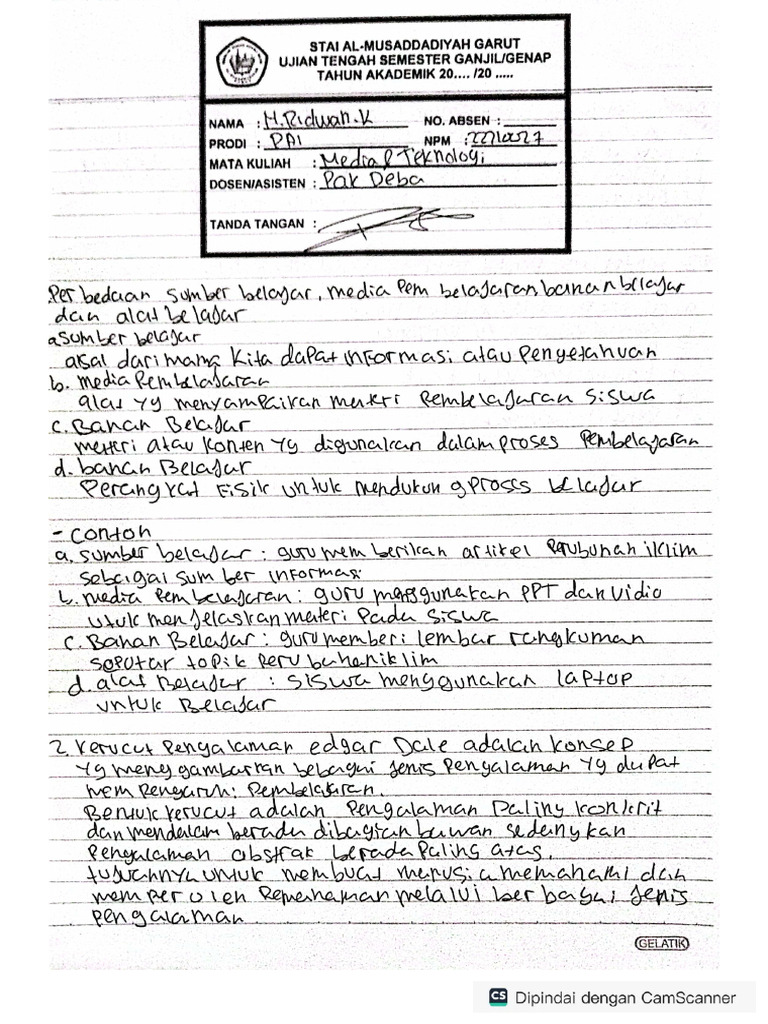 STAI AL-MUSADDADIYAH GARUT
UJIAN TENGAH SEMESTER GANJIL/GENAP
TAHUN AKADEMIK 20.... /20 .....
NAMA : M.Ridwan.K NO. ABSEN :
PRODI : PAI NPM :
MATA KULIAH : Media & Teknologi
DOSEN/ASISTEN : Pak Deba
TANDA TANGAN :
Perbedaan sumber belajar, media Pembelajaran, bahan belajar
dan alat belajar
a sumber belajar
asal dari mana kita dapat informasi atau Pengetahuan
b. media Pembelajaran
alat yg menyampaikan materi Pembelajaran siswa
c. Bahan Belajar
materi atau konten yg digunakan dalam proses Pembelajaran
d. bahan Belajar
Perangkat Fisik untuk mendukung proses belajar
- contoh
a. sumber belajar : guru memberikan artikel Perubahan iklim
sebagai sumber informasi
b. media Pembelajaran : guru menggunakan PPT dan vidio
utuk menjelaskan materi Pada siswa
c. Bahan Belajar : guru memberi lembar rangkuman
seputar topik Perubahan iklim
d. alat Belajar : siswa menggunakan laptop
untuk Belajar
2. Kerucut Pengalaman edgar Dale adalah konsep
yg menggambarkan bebagai jenis Pengalaman yg dapat
mempengaruhi Pembelajaran.
Bentuk kerucut adalah Pengalaman Paling konkrit
dan mendalam berada dibagian bawah sedangkan
Pengalaman abstrak berada Paling atas.
tujuannya untuk membuat manusia memahami dan
memperoleh Pemahaman melalui berbagai jenis
pengalaman
GELATIK
CS Dipindai dengan CamScanner